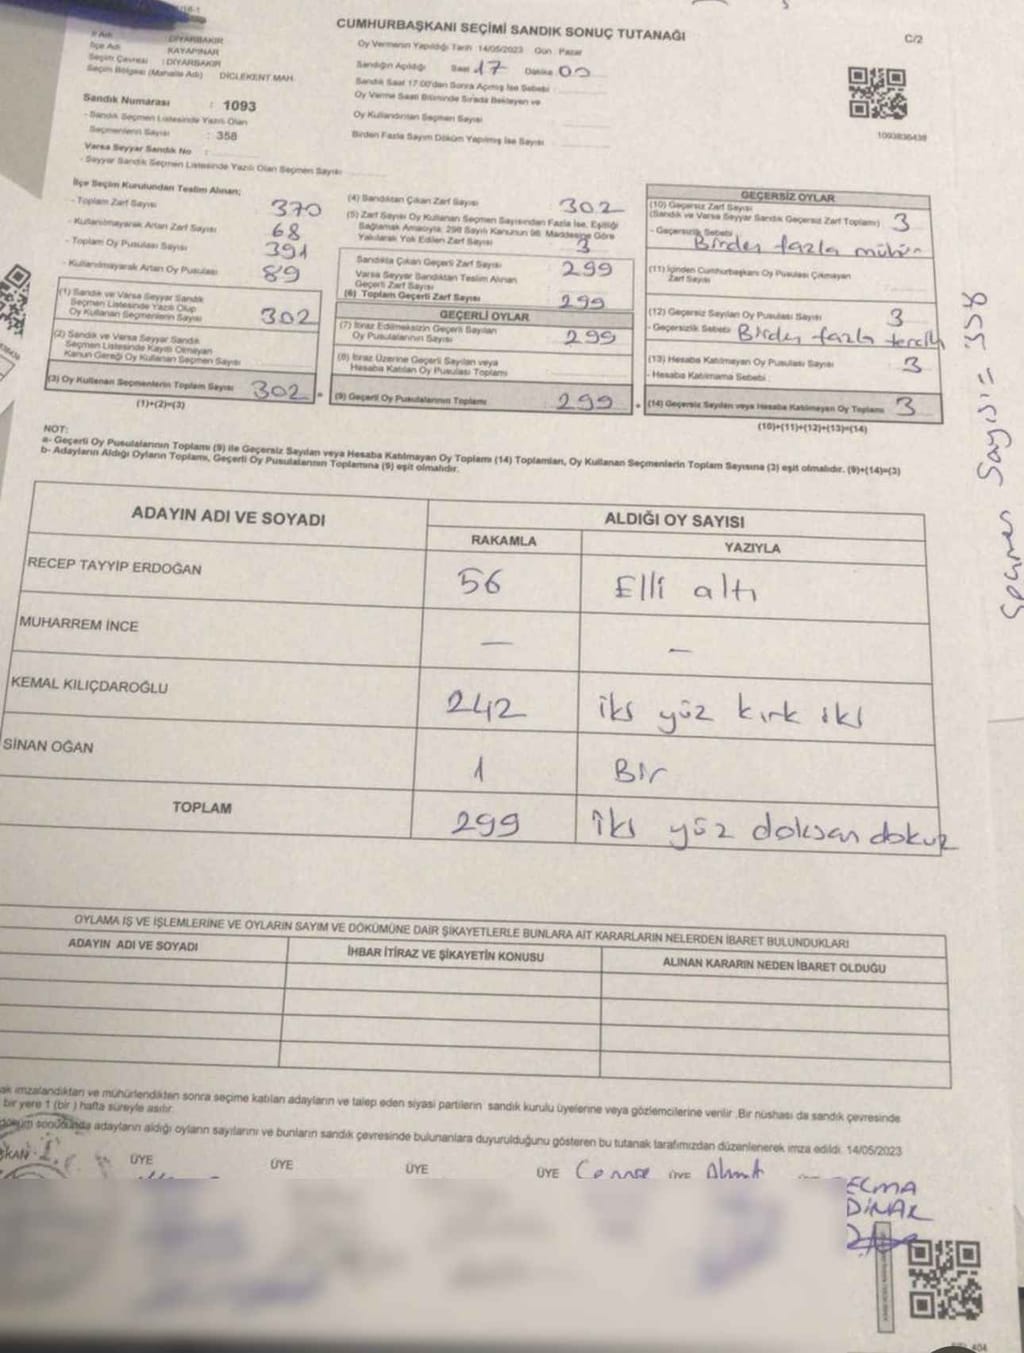 CUMHURBAŞKANI SEÇİMİ SANDIK SONUÇ TUTANAĞI
C/2
İl Adı : DİYARBAKIR
İlçe Adı KAYAPINAR
Seçim Çevresi : DİYARBAKIR
Seçim Bölgesi (Mahalle Adı) DİCLEKENT MAH.
Sandık Numarası : 1093
- Sandık Seçmen Listesinde Yazılı Olan
Seçmenlerin Sayısı : 358
Varsa Seyyar Sandık No :
- Seyyar Sandık Seçmen Listesinde Yazılı Olan Seçmen Sayısı
Oy Vermenin Yapıldığı Tarih 14/05/2023 Gün : Pazar
Sandığın Açıldığı Saat 17 Dakika 00
Sandık Saat 17.00'dan Sonra Açılmış İse Sebebi
Oy Verme Saati Bitiminde Sırada Bekleyen ve
Oy Kullandırılan Seçmen Sayısı
Birden Fazla Sayım Döküm Yapılmış İse Sayısı
1093836438
İlçe Seçim Kurulundan Teslim Alınan;
- Toplam Zarf Sayısı 370
- Kullanılmayarak Artan Zarf Sayısı 68
- Toplam Oy Pusulası Sayısı 391
- Kullanılmayarak Artan Oy Pusulası 89
(1) Sandık ve Varsa Seyyar Sandık
Seçmen Listesinde Yazılı Olup
Oy Kullanan Seçmenlerin Sayısı 302
(2) Sandık ve Varsa Seyyar Sandık
Seçmen Listesinde Kaydı Olmayan
Kanun Gereği Oy Kullanan Seçmen Sayısı
(3) Oy Kullanan Seçmenlerin Toplam Sayısı 302
(1)+(2)=(3)
(4) Sandıktan Çıkan Zarf Sayısı 302
(5) Zarf Sayısı Oy Kullanan Seçmen Sayısından Fazla İse, Eşitliği
Sağlamak Amacıyla, 298 Sayılı Kanunun 98. Maddesine Göre
Yakılarak Yok Edilen Zarf Sayısı 3
Sandıkta Çıkan Geçerli Zarf Sayısı 299
Varsa Seyyar Sandıktan Teslim Alınan
Geçerli Zarf Sayısı
(6) Toplam Geçerli Zarf Sayısı 299
GEÇERLİ OYLAR
(7) İtiraz Edilmeksizin Geçerli Sayılan
Oy Pusulalarının Sayısı 299
(8) İtiraz Üzerine Geçerli Sayılan veya
Hesaba Katılan Oy Pusulası Toplamı
(9) Geçerli Oy Pusulalarının Toplamı 299
GEÇERSİZ OYLAR
(10) Geçersiz Zarf Sayısı
(Sandık ve Varsa Seyyar Sandık Geçersiz Zarf Toplamı) 3
- Geçersizlik Sebebi Birden fazla mühür
(11) İçinden Cumhurbaşkanı Oy Pusulası Çıkmayan
Zarf Sayısı
(12) Geçersiz Sayılan Oy Pusulası Sayısı 3
- Geçersizlik Sebebi Birden fazla tercih
(13) Hesaba Katılmayan Oy Pusulası Sayısı 3
- Hesaba Katılmama Sebebi
(14) Geçersiz Sayılan veya Hesaba Katılmayan Oy Toplamı 3
(10)+(11)+(12)+(13)=(14)
Seçmen sayısı = 358
NOT:
a- Geçerli Oy Pusulalarının Toplamı (9) ile Geçersiz Sayılan veya Hesaba Katılmayan Oy Toplamı (14) Toplamları, Oy Kullanan Seçmenlerin Toplam Sayısına (3) eşit olmalıdır. (9)+(14)=(3)
b- Adayların Aldığı Oyların Toplamı, Geçerli Oy Pusulalarının Toplamına (9) eşit olmalıdır.
ADAYIN ADI VE SOYADI ALDIĞI OY SAYISI
RAKAMLA YAZIYLA
RECEP TAYYİP ERDOĞAN 56 Elli altı
MUHARREM İNCE — —
KEMAL KILIÇDAROĞLU 242 iki yüz kırk iki
SİNAN OĞAN 1 Bir
TOPLAM 299 iki yüz doksan dokuz
OYLAMA İŞ VE İŞLEMLERİNE VE OYLARIN SAYIM VE DÖKÜMÜNE DAİR ŞİKAYETLERLE BUNLARA AİT KARARLARIN NELERDEN İBARET BULUNDUKLARI
ADAYIN ADI VE SOYADI İHBAR İTİRAZ VE ŞİKAYETİN KONUSU ALINAN KARARIN NEDEN İBARET OLDUĞU
imzalandıktan ve mühürlendikten sonra seçime katılan adayların ve talep eden siyasi partilerin sandık kurulu üyelerine veya gözlemcilerine verilir. Bir nüshası da sandık çevresinde
bir yere 1 (bir) hafta süreyle asılır.
sonucunda adayların aldığı oyların sayılarını ve bunların sandık çevresinde bulunanlara duyurulduğunu gösteren bu tutanak tarafımızdan düzenlenerek imza edildi. 14/05/2023
ÜYE ÜYE ÜYE ÜYE ÜYE Ahmet
ECMA
DİNAR